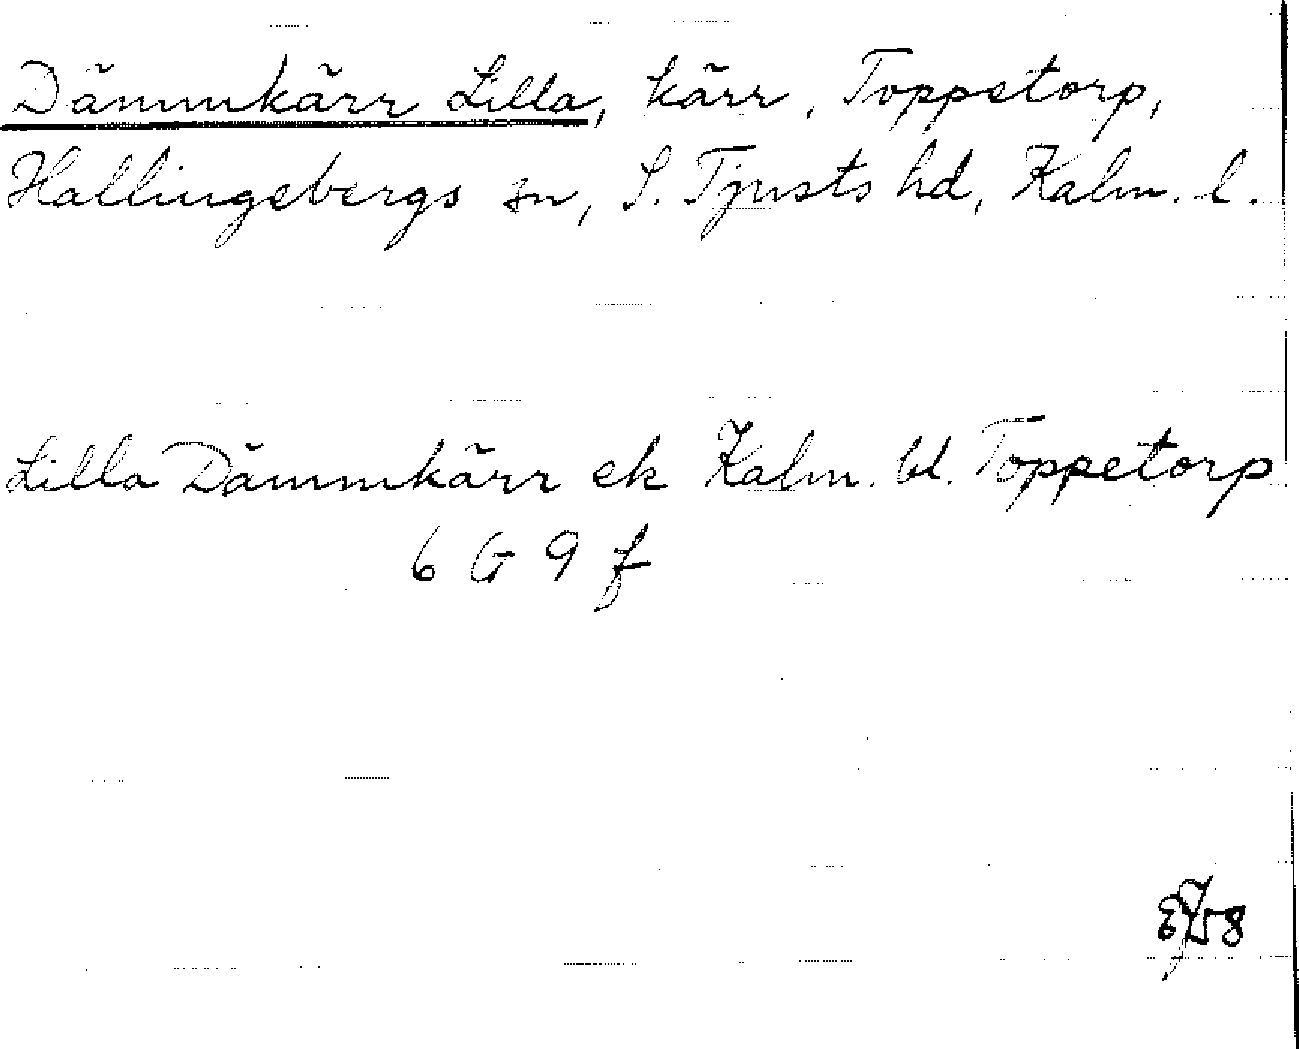 Dämmkärr Lilla, kärr, Toppetorp,
Hallingebergs sn, S. Tjusts hd, Kalm. l.
Lilla Dämmkärr ek Kalm. bl. Toppetorp
6 G 9 f